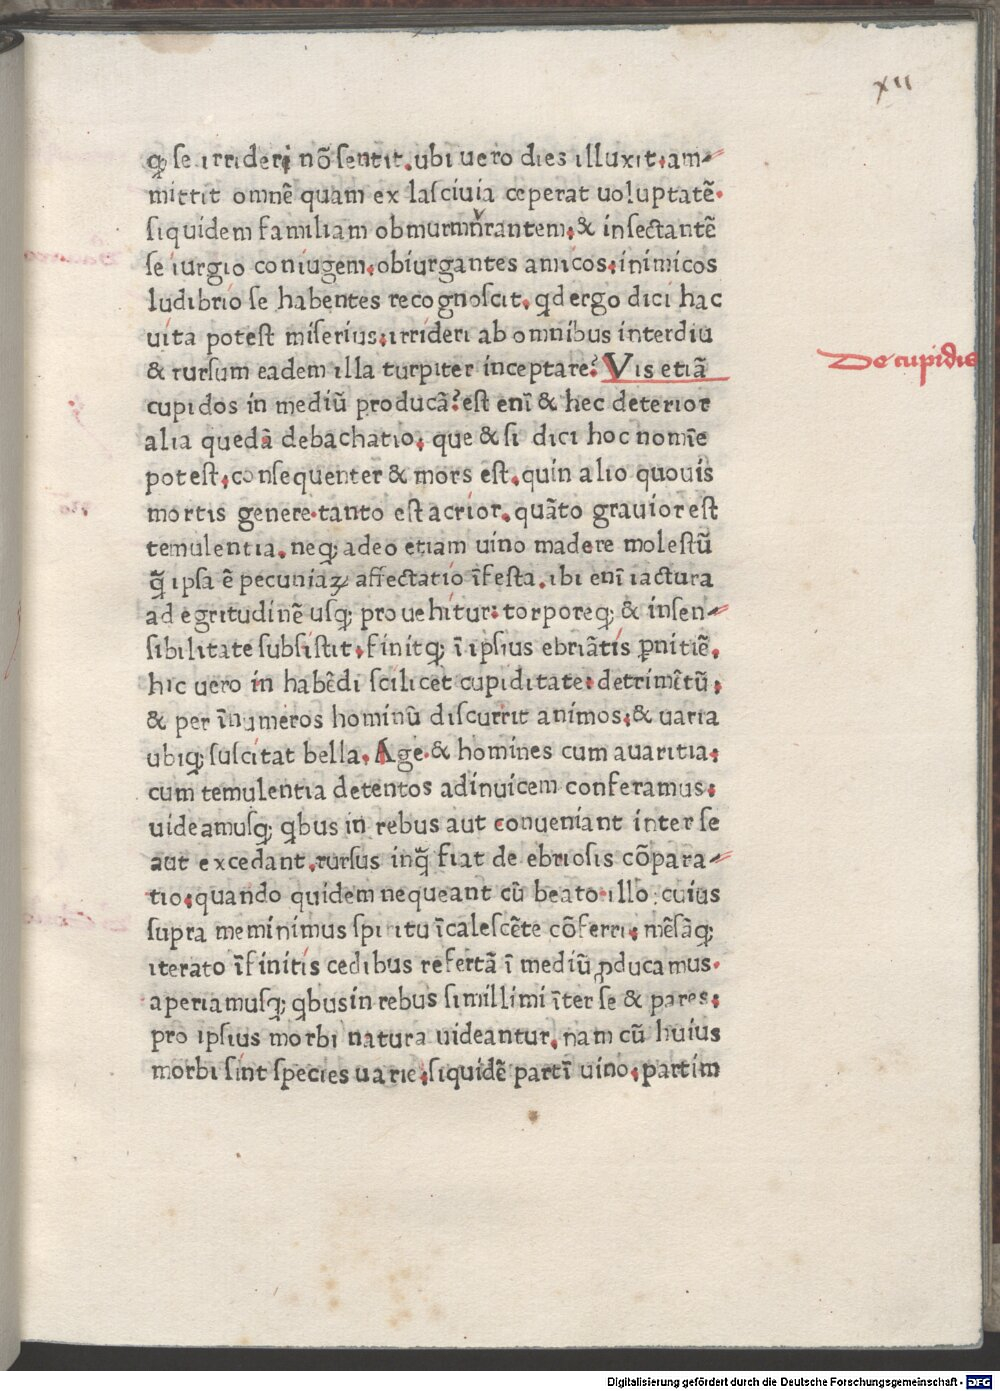 xii
ꝙ se irrideri nō sentit. ubi uero dies illuxit. am⸗
mittit omnē quam ex lasciuia ceperat uoluptatē.
siquidem familiam obmurmurantem. & insectantē
se iurgio coniugem. obiurgantes amicos. inimicos
ludibrio se habentes recognoscit. qd ergo dici hac
uita potest miserius. irrideri ab omnibus interdiu
& rursum eadem illa turpiter inceptare? Vis etiā
De cupidis
cupidos in mediū producā? est eni̅ & hec deterior
alia quedā debachatio. que & si dici hoc nomi̅e
potest. consequenter & mors est. quin alio quouis
mortis genere. tanto est acrior. quāto grauior est
temulentia. neqꝫ adeo etiam uino madere molestū
q̄ ipsa ē pecuniaꝝ affectatio i̅festa. ibi eni̅ iactura
ad egritudinē usqꝫ prouehitur: torporeqꝫ & insen⸗
sibilitate subsistit. finitqꝫ i̅ ipsius ebriātis ꝑnitiē.
hic uero in habēdi scilicet cupiditate: detrimi̅tū.
& per i̅numeros hominū discurrit animos. & uaria
ubiqꝫ suscitat bella. Age. & homines cum auaritia.
cum temulentia detentos adinuicem conferamus.
uideamusqꝫ qbus in rebus aut conueniant inter se
aut excedant. rursus inq̄ fiat de ebriosis cōpara⸗
tio. quando quidem nequeant cū beato illo: cuius
supra meminimus spiritu i̅calescēte cōferri. mēsāqꝫ
iterato i̅finitis cedibus refertā i̅ mediū ꝓducamus.
aperiamusqꝫ qbus in rebus simillimi i̅ter se & pares.
pro ipsius morbi natura uideantur. nam cū huius
morbi sint species uarie. siquidē parti̅ uino. partim
Digitalisierung gefördert durch die Deutsche Forschungsgemeinschaft - DFG